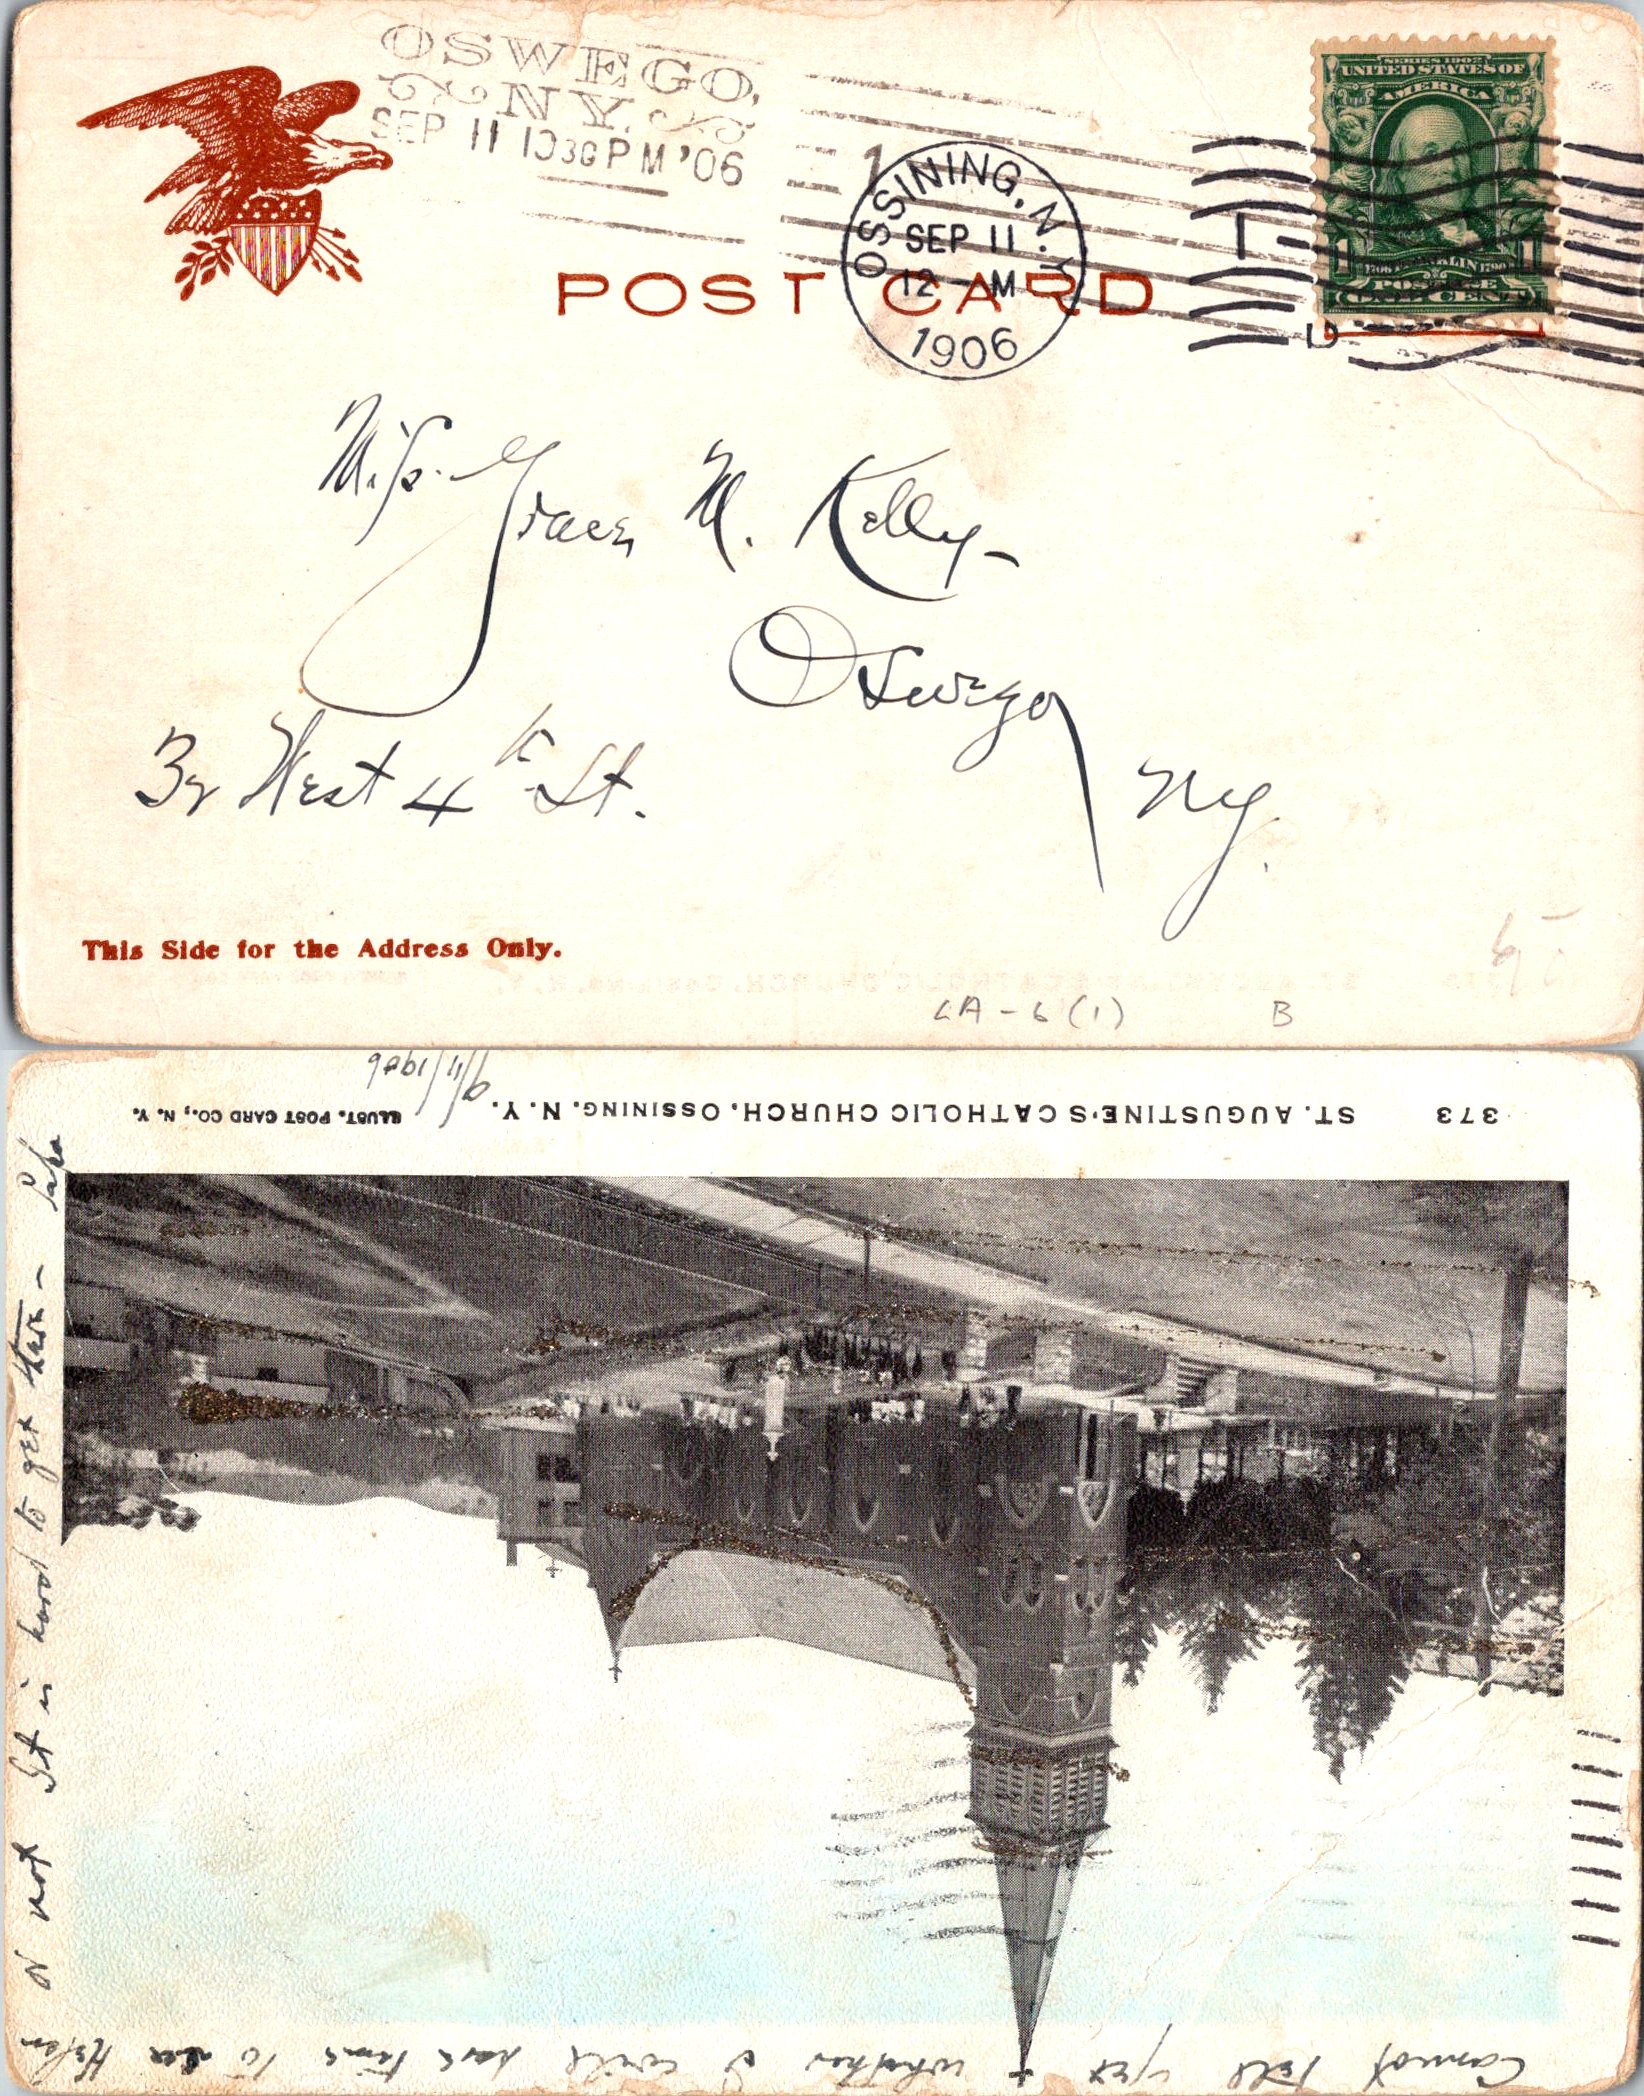 OSWEGO,
N.Y.
SEP 11 1030 PM '06
1
OSSINING, N.Y.
SEP 11
12 - M
1906
SERIES 1902
UNITED STATES OF
AMERICA
1706 FRANKLIN 1790
1 1
POSTAGE
ONE CENT
POST CARD
Miss. Grace M. Kelly -
Oswego
N.Y.
West 4th St.
This Side for the Address Only.
LA - 6 (1) B
9/11/1906
373 ST. AUGUSTINE'S CATHOLIC CHURCH, OSSINING, N. Y. ILLUST. POST CARD CO., N. Y.
Cannot tell yet whether I will have time to see Helen
or not It is hard to get there - Papa